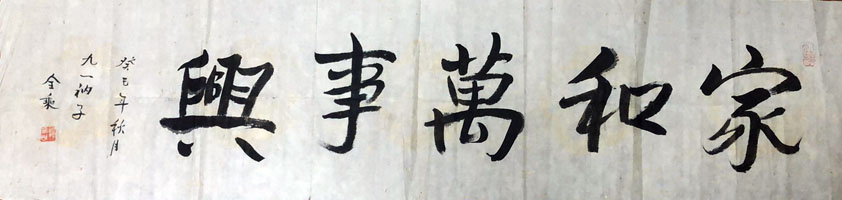 家和萬事興
癸巳年秋月
九一衲子
全乘